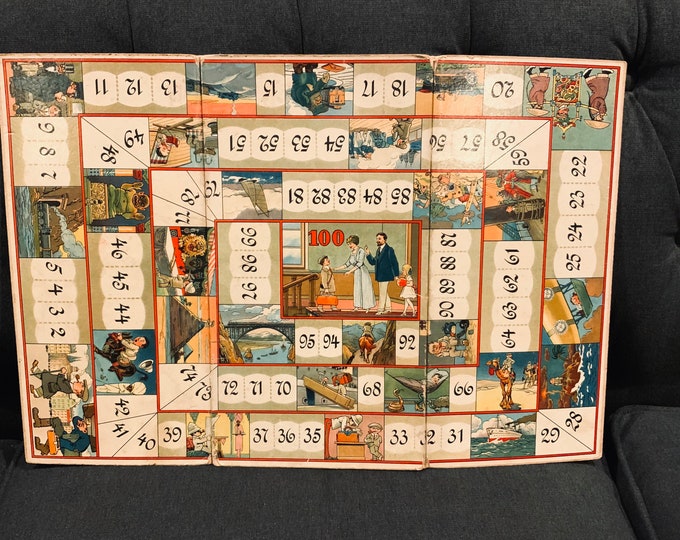 2 3 4 5
7 8 9
11 12 13
15
17 18
20
22 23 24 25
28
29
31 32
33
35 36 37
39
40
41
42
44 45 46
48
49
51 52 53 54
56 57
58
59
61 62 63 64
66
68
70 71 72
73
74
77
78
79
81 82 83 84 85
87 88 89 90
92
94 95
97 98 99
100